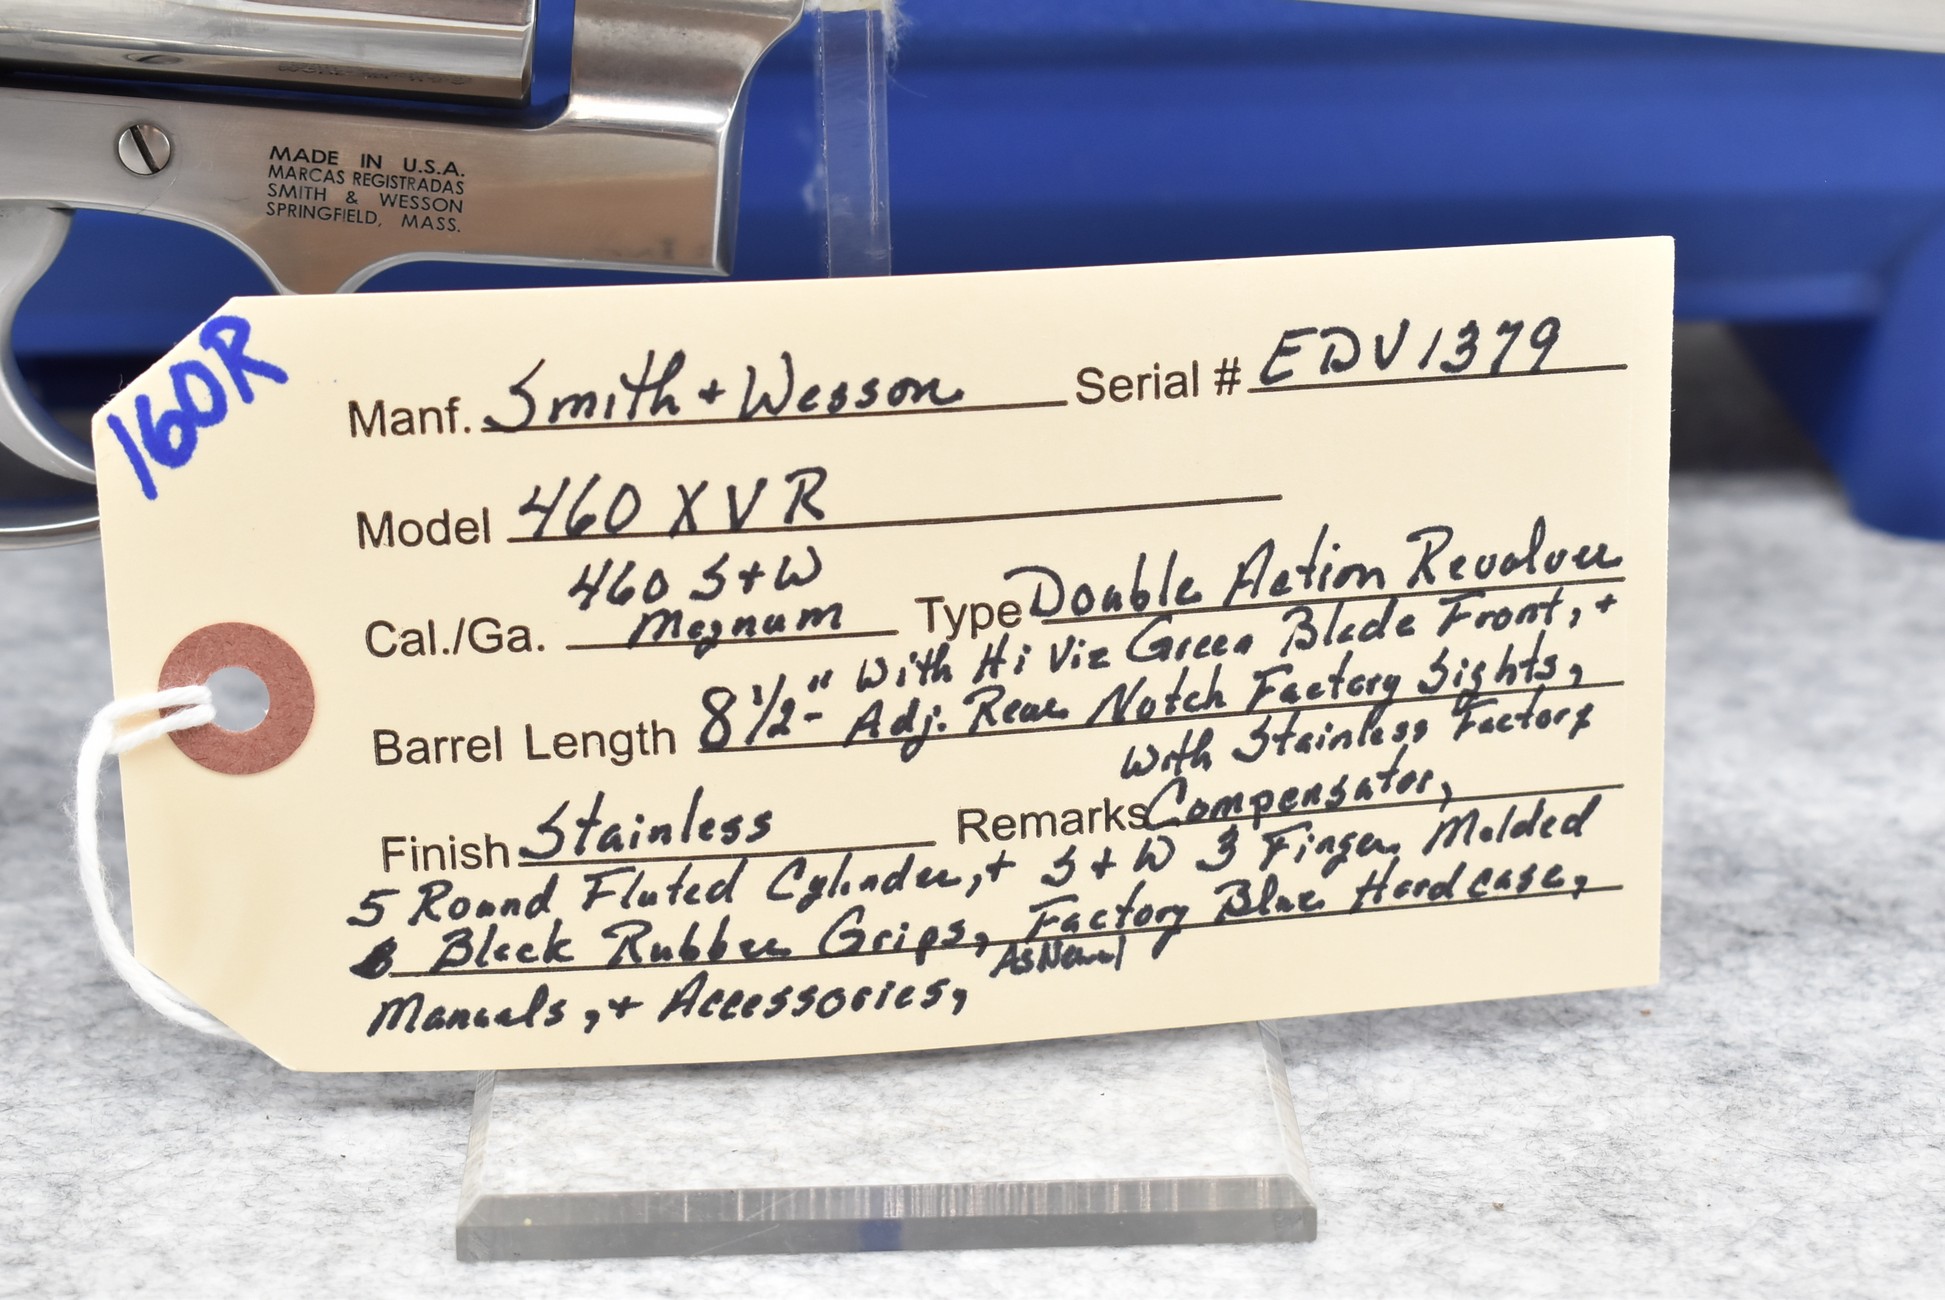 MADE IN U.S.A.
MARCAS REGISTRADAS
SMITH & WESSON
SPRINGFIELD, MASS.
160R
Manf. Smith + Wesson Serial # EDV1379
Model 460 XVR
Cal./Ga. 460 S+W Magnum Type Double Action Revolver
Barrel Length 8 1/2"- With Hi Viz Green Blade Front, +
Adj. Rear Notch Factory Sights,
Finish Stainless Remarks With Stainless Factory
Compensator,
5 Round Fluted Cylinder, + S+W 3 Finger Molded
Black Rubber Grips, Factory Blue Hardcase,
Manuals, + Accessories, As New!